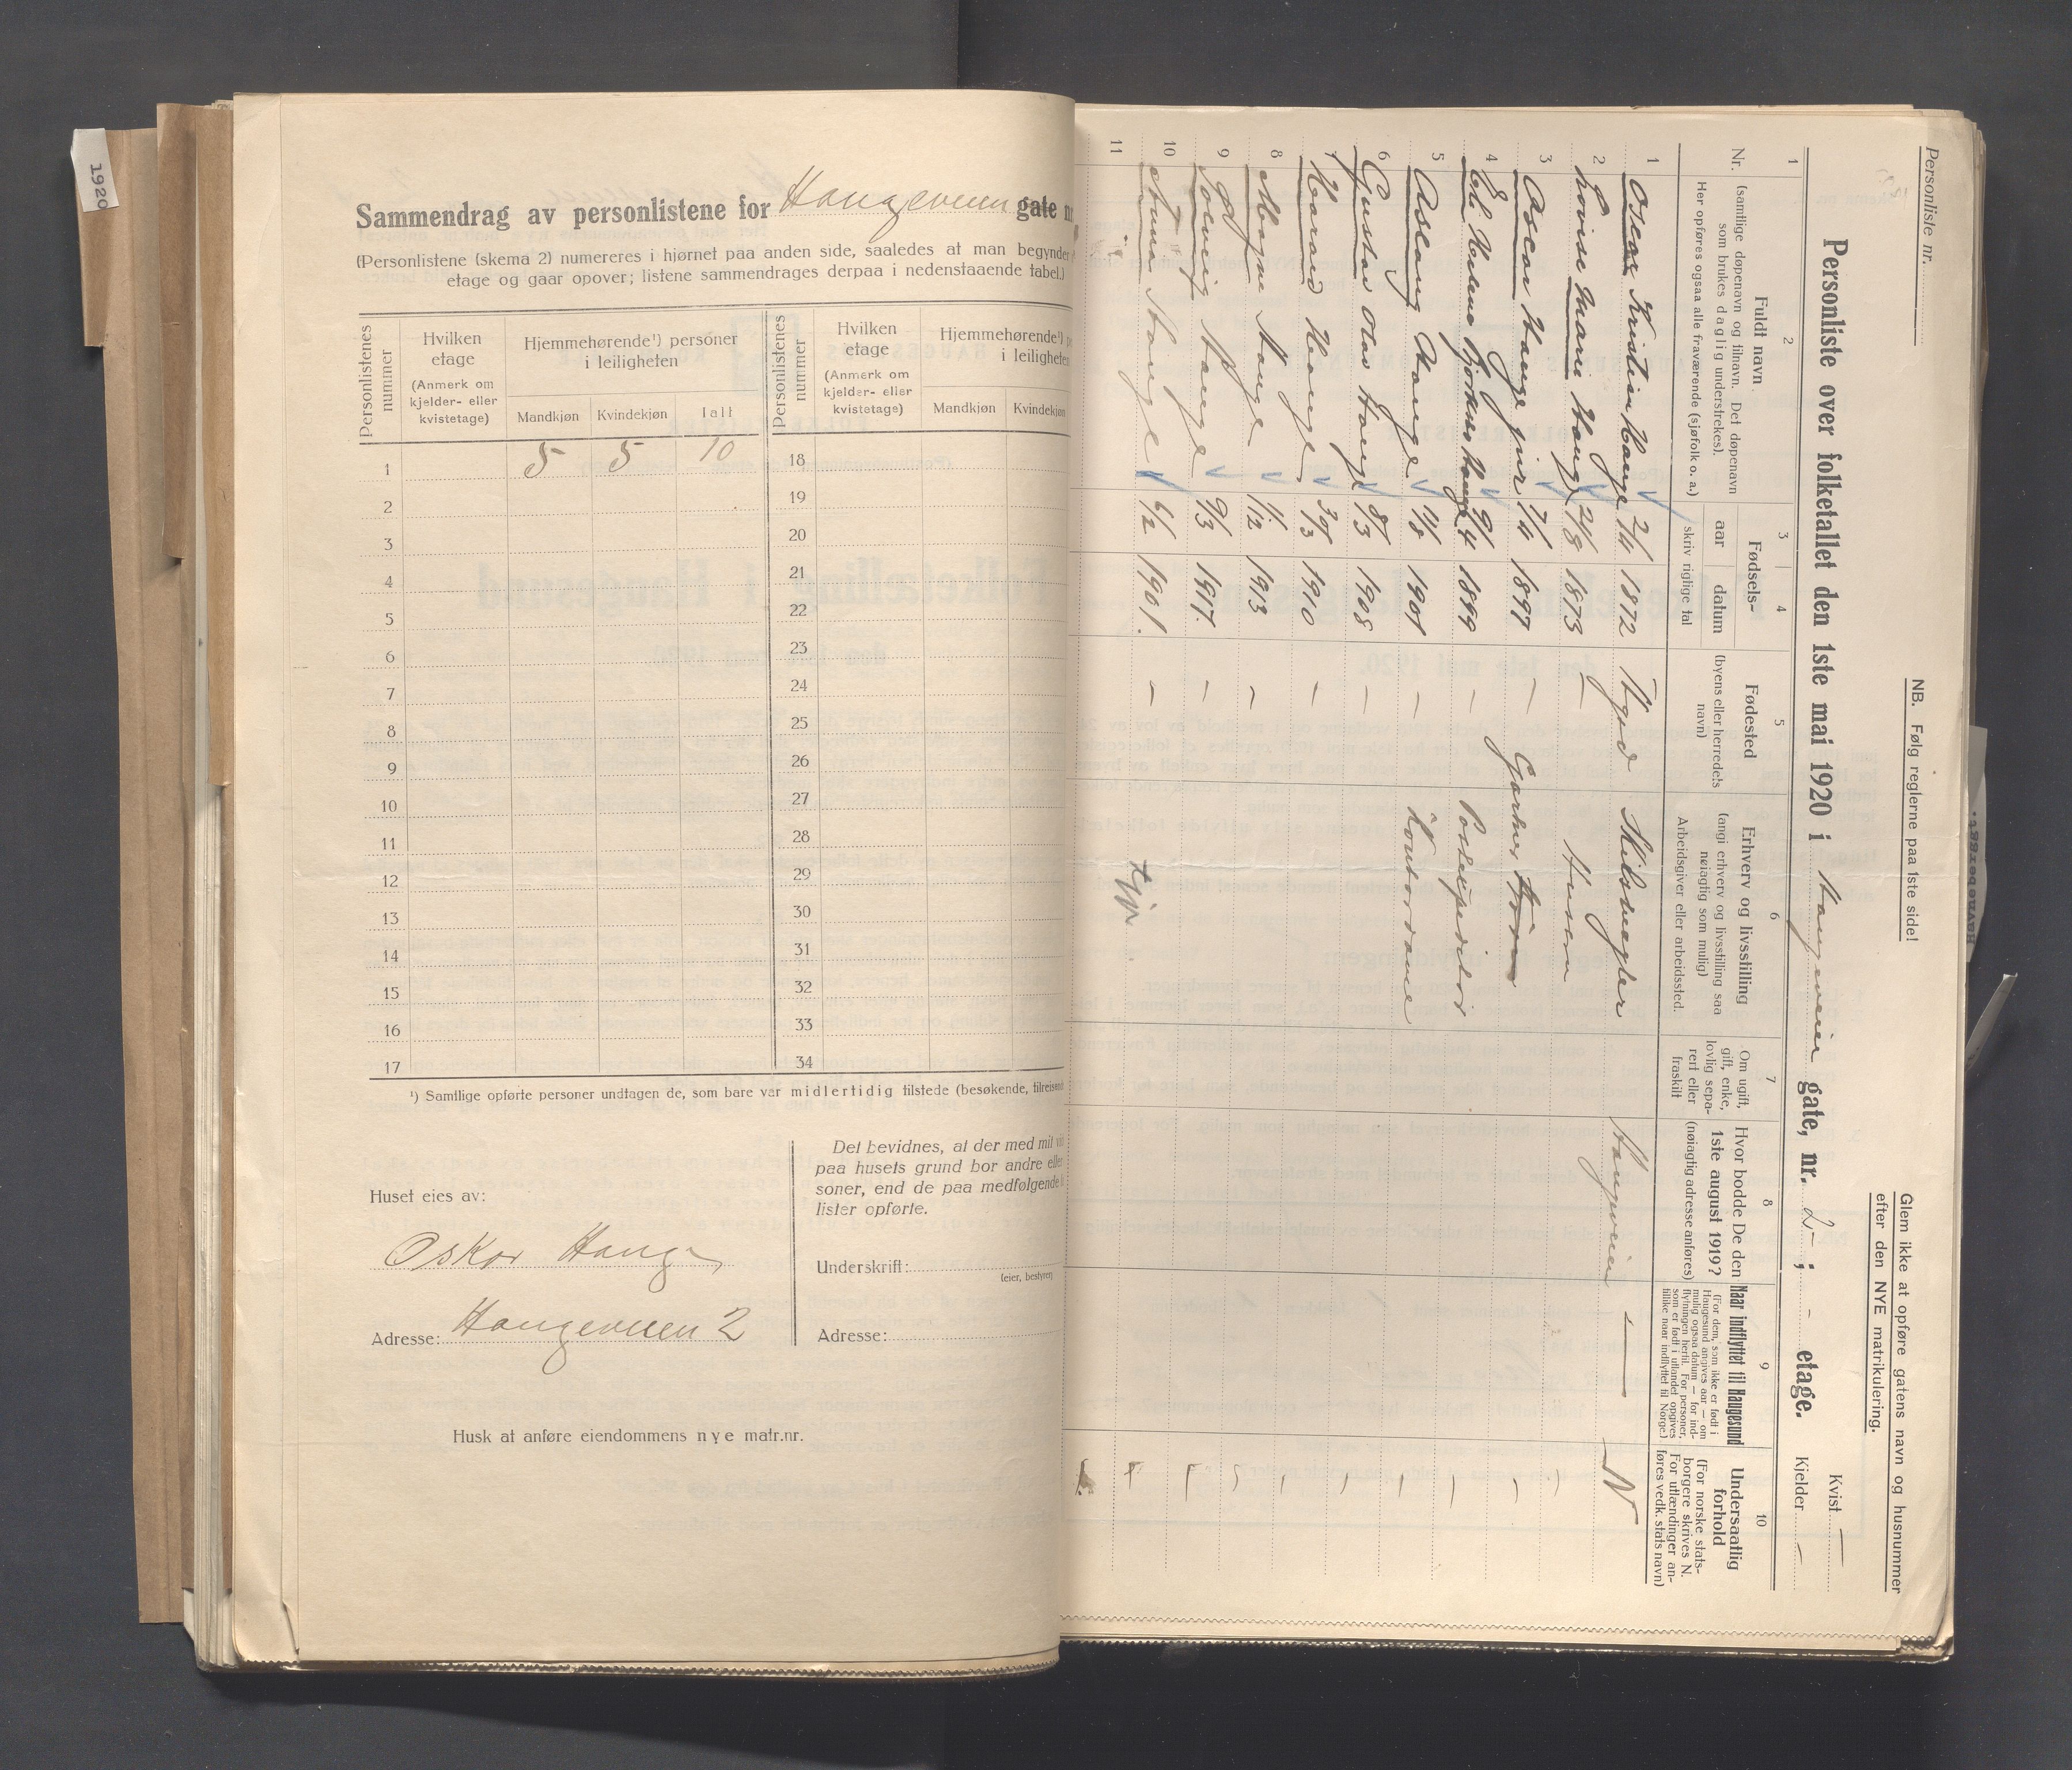 1920
Sammendrag av personlistene for Haugeveien gate nr
(Personlistene (skema 2) numereres i hjørnet paa anden side, saaledes at man begynder
etage og gaar opover; listene sammendrages derpaa i nedenstaaende tabel.)
Personlistenes nummer
Hvilken etage
(Anmerk om kjelder- eller kvistetage)
Hjemmehørende¹) personer i leiligheten
Mandkjøn Kvindekjøn Ialt
Personlistenes nummer
Hvilken etage
(Anmerk om kjelder- eller kvistetage)
Hjemmehørende¹)
i leiligheten
Mandkjøn Kvindekjøn
1 5 5 10 18
2 19
3 20
4 21
5 22
6 23
7 24
8 25
9 26
10 27
11 28
12 29
13 30
14 31
15 32
16 33
17 34
¹) Samtlige opførte personer undtagen de, som bare var midlertidig tilstede (besøkende, tilreisende
Huset eies av:
Oskar Hauge
Adresse: Haugeveien 2
Det bevidnes, at der med mit
paa husets grund bor andre eller
soner, end de paa medfølgende
lister opførte.
Underskrift:
(eier, bestyrer)
Adresse:
Husk at anføre eiendommens nye matr.nr.
Personliste nr.
NB. Følg reglerne paa 1ste side!
Glem ikke at opføre gatens navn og husnummer
efter den NYE matrikulering.
Personliste over folketallet den 1ste mai 1920 i Haugeveien gate, nr. 2 - ; - etage.
Kvist —
Kjelder —
1 2 3 4 5 6 7 8 9 10
Nr.
Fuldt navn
(samtlige døpenavn og tilnavn. Det døpenavn
som brukes daglig understrekes).
Her opføres ogsaa alle fraværende (sjøfolk o. a.)
Fødsels-
aar datum
skriv rigtige tal
Fødested
(byens eller herredets navn)
Erhverv og livsstilling
(angi erhverv og livsstilling saa
nøiagtig som mulig)
Arbeidsgiver eller arbeidssted.
Om ugift,
gift, enke,
lovlig sepa-
rert eller
fraskilt
Hvor bodde De den
1ste august 1919?
(nøiagtig adresse anføres)
Naar indflyttet til Haugesund
(For dem, som ikke er født i
Haugesund angives aar — om
mulig ogsaa datum — for ind-
flytningen hertil. For personer,
som er født i utlandet opgives
tillike naar indflyttet til Norge.)
Undersaatlig
forhold
(For norske stats-
borgere skrives N.
For utlændinger an-
føres vedk. stats navn)
1 Oscar Kristian Hauge 2/4 1872 Skilsnegler Haugeveien — N
2 Lovise Marie Hauge 2/8 1873 — Husm
3 Oscar Hauge jnr 7/4 1897 — Garher
4 El. Helene Hauge 9/4 1899 — Postexpeditør
5 Aslaug Hauge 1/8 1901 — Kontordame
6 Gustav Olav Hauge 8/3 1908 —
7 Harald Hauge 30/3 1910 —
8 Magne Hauge 1/12 1913 —
9 Solveig Hauge 9/3 1917. —
10 Anna Hauge 6/2 1901. — tjp.
11